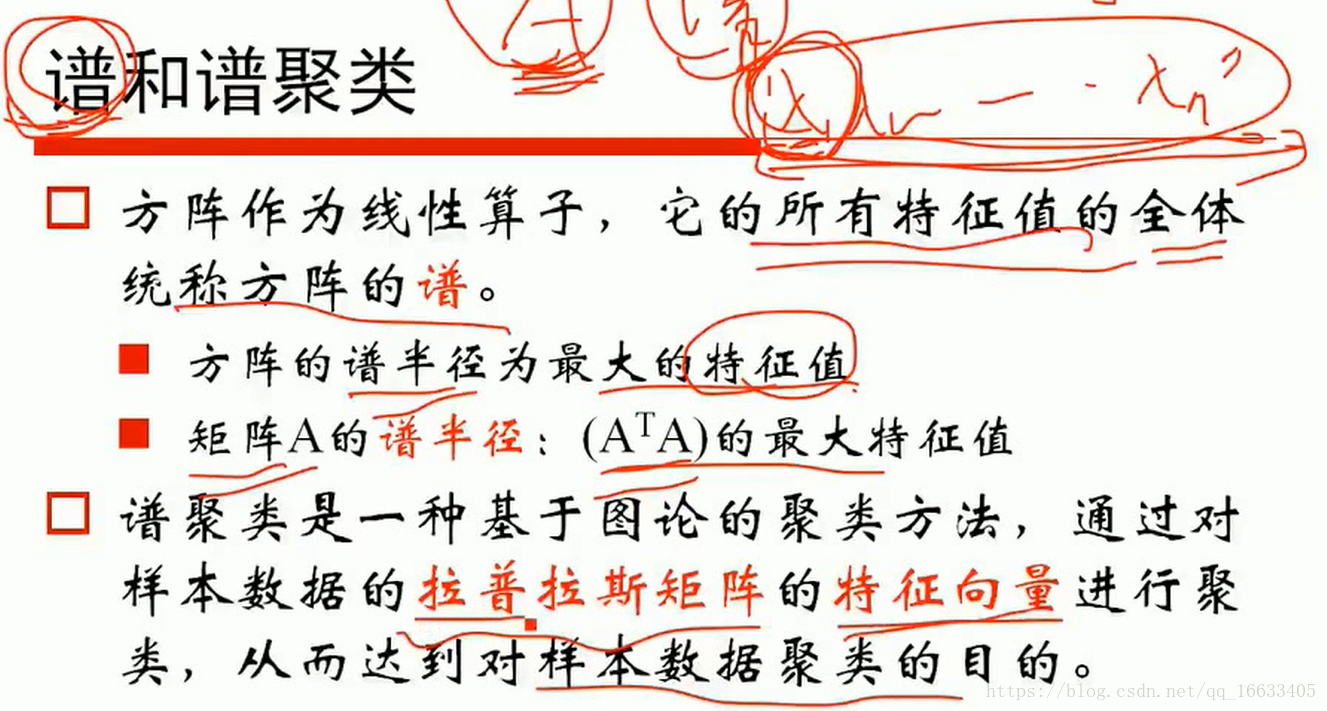 谱和谱聚类
方阵作为线性算子，它的所有特征值的全体
统称方阵的谱。
方阵的谱半径为最大的特征值
矩阵A的谱半径：(AᵀA)的最大特征值
谱聚类是一种基于图论的聚类方法，通过对
样本数据的拉普拉斯矩阵的特征向量进行聚
类，从而达到对样本数据聚类的目的。
https://blog.csdn.net/qq_16633405